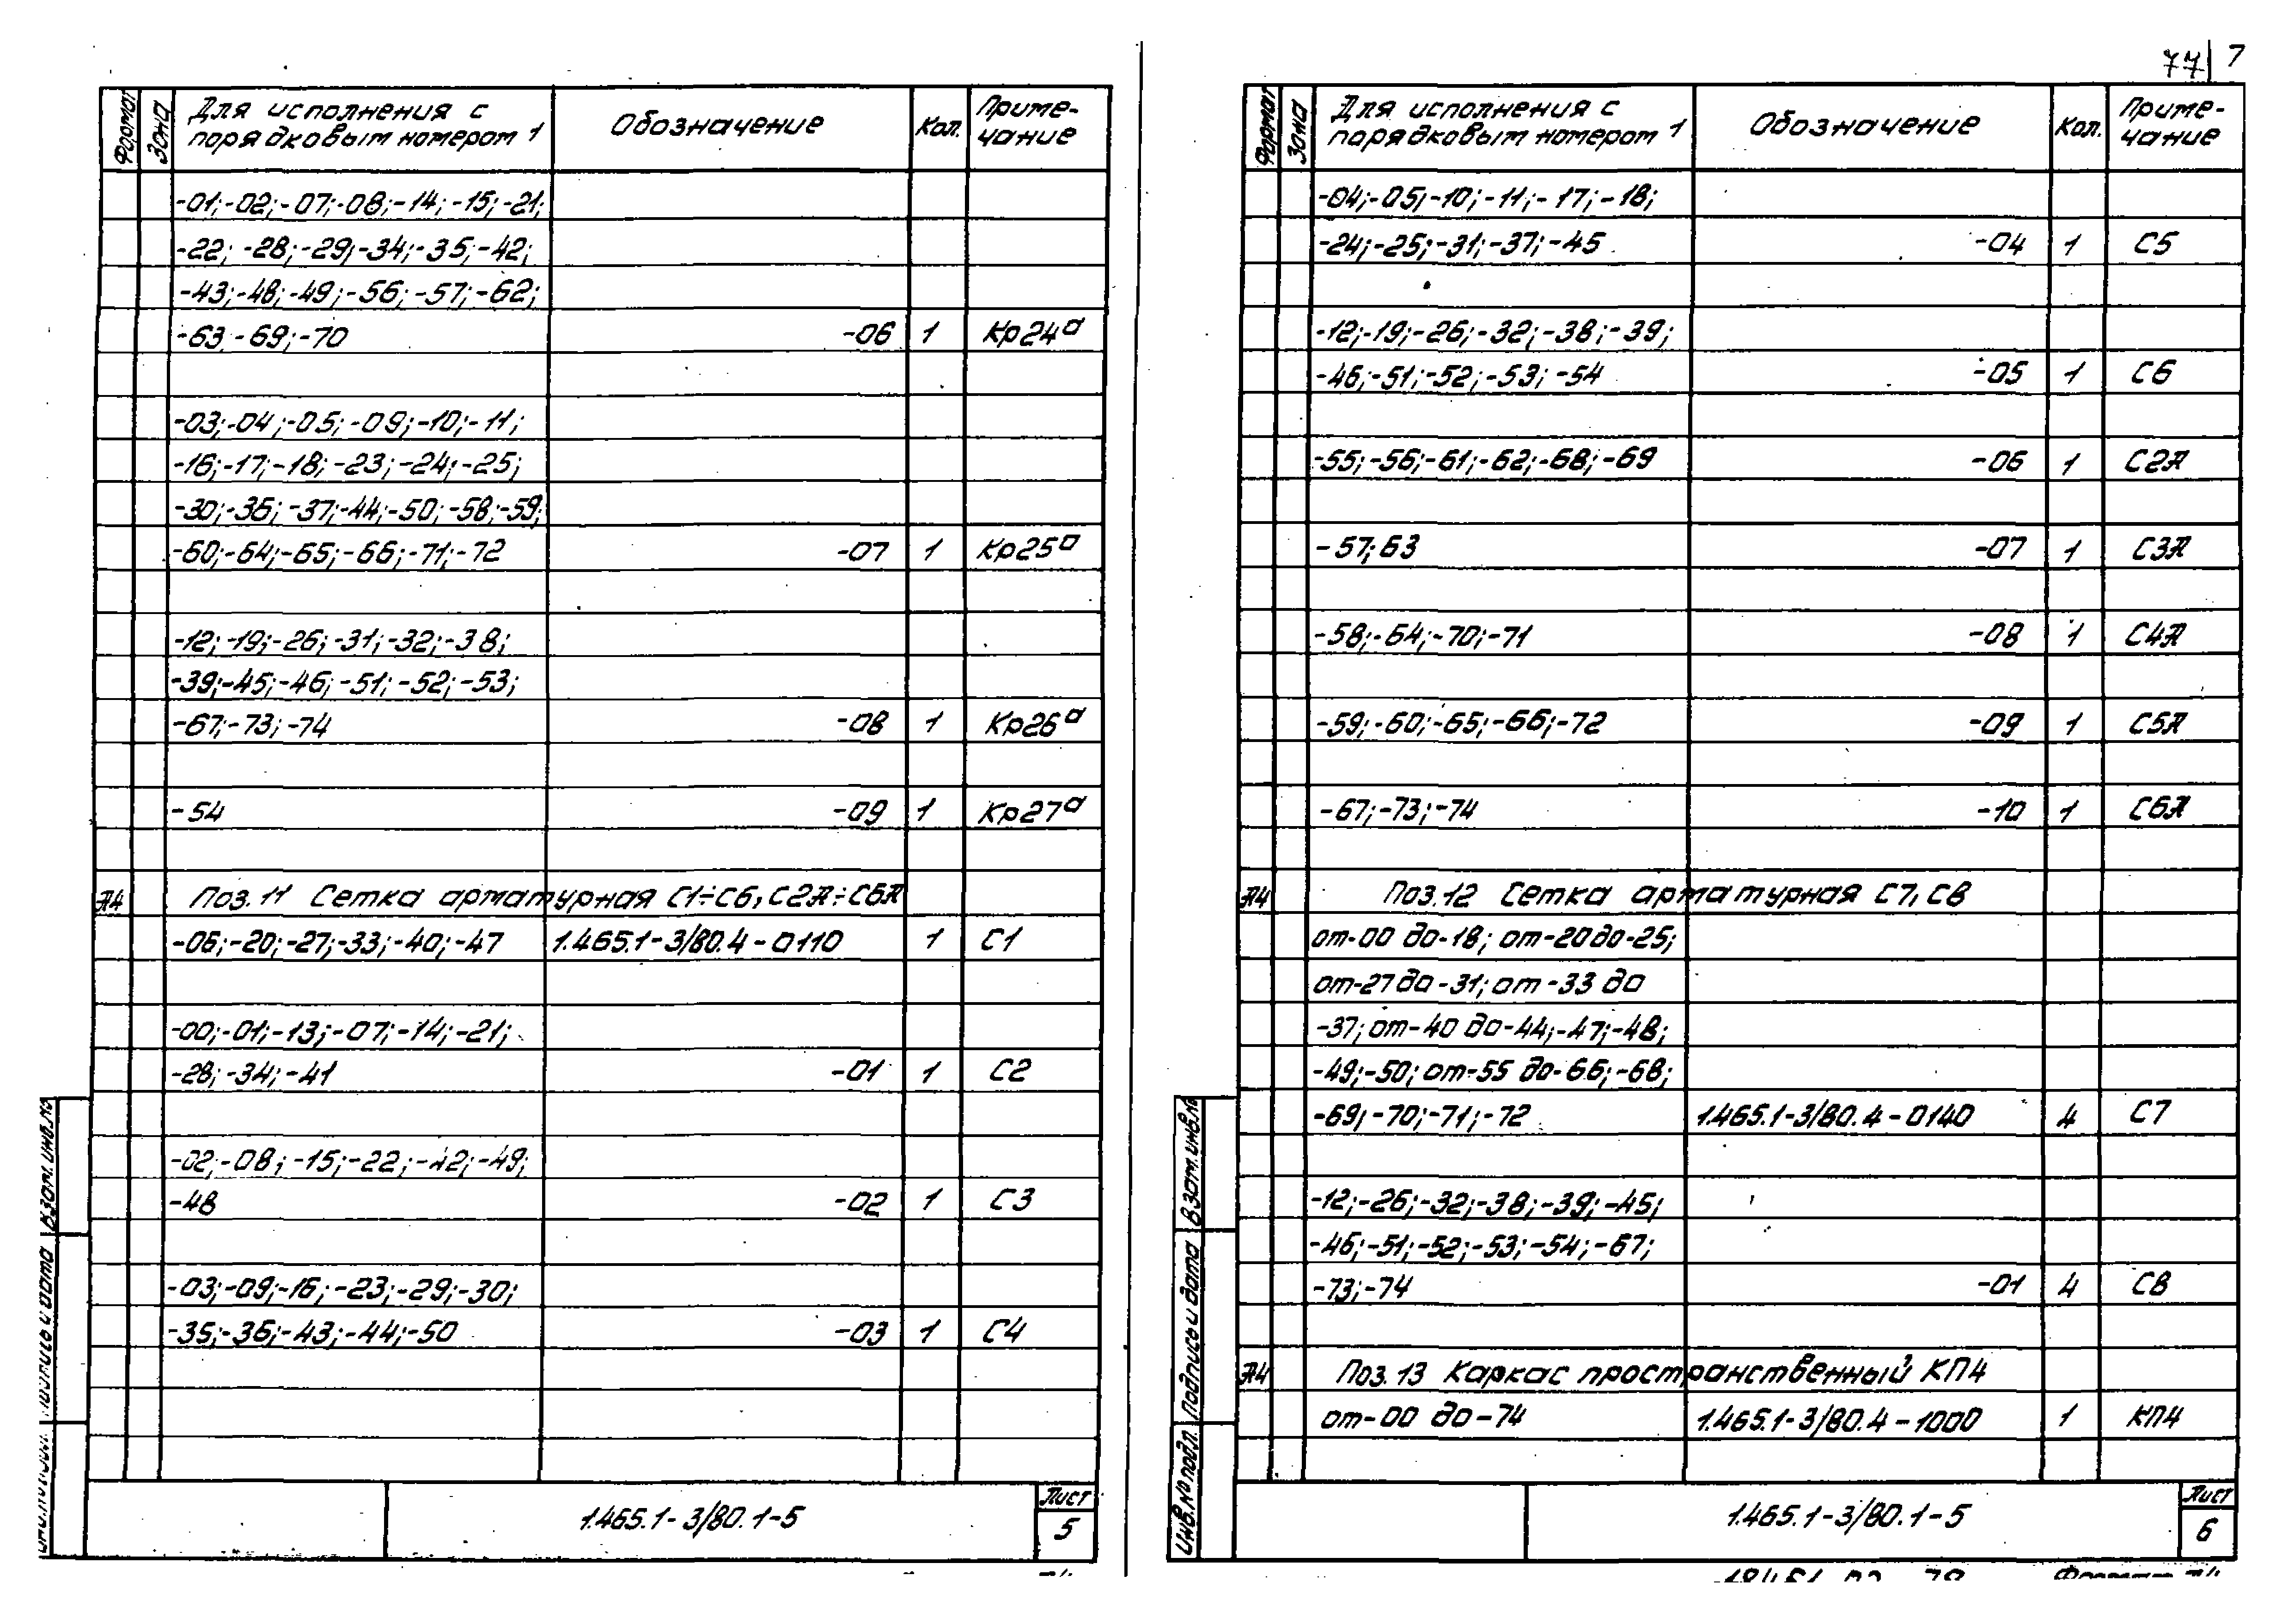 77 7
Формат Зона Для исполнения с порядковым номером 1 Обозначение Кол. Приме- чание
-01;-02;-07;-08;-14;-15;-21;
-22; -28;-29;-34;-35;-42;
-43;-48;-49;-56;-57;-62;
-63;-69;-70 -06 1 Кр24а
-03;-04;-05;-09;-10;-11;
-16;-17;-18;-23;-24;-25;
-30;-36;-37;-44;-50;-58;-59;
-60;-64;-65;-66;-71;-72 -07 1 Кр25а
-12;-19;-26;-31;-32;-38;
-39;-45;-46;-51;-52;-53;
-67;-73;-74 -08 1 Кр26а
-54 -09 1 Кр27а
А4 Поз.11 Сетка арматурная С1÷С6, С2А÷С6А
-06;-20;-27;-33;-40;-47 1.465.1-3/80.4-0110 1 С1
-00;-01;-13;-07;-14;-21;
-28;-34;-41 -01 1 С2
-02;-08;-15;-22;-42;-49;
-48 -02 1 С3
-03;-09;-16;-23;-29;-30;
-35;-36;-43;-44;-50 -03 1 С4
Взам.инв.№
Подпись и дата
1.465.1-3/80.1-5
Лист
5
Формат Зона Для исполнения с порядковым номером 1 Обозначение Кол. Приме- чание
-04;-05;-10;-11;-17;-18;
-24;-25;-31;-37;-45 -04 1 С5
-12;-19;-26;-32;-38;-39;
-46;-51;-52;-53;-54 -05 1 С6
-55;-56;-61;-62;-68;-69 -06 1 С2А
-57;63 -07 1 С3А
-58;-64;-70;-71 -08 1 С4А
-59;-60;-65;-66;-72 -09 1 С5А
-67;-73;-74 -10 1 С6А
А4 Поз.12 Сетка арматурная С7, С8
от-00 до-18; от-20 до-25;
от-27 до-31; от-33 до
-37; от-40 до-44;-47;-48;
-49;-50; от-55 до-66;-68;
-69;-70;-71;-72 1.465.1-3/80.4-0140 4 С7
-12;-26;-32;-38;-39;-45;
-46;-51;-52;-53;-54;-67;
-73;-74 -01 4 С8
А4 Поз.13 Каркас пространственный КП4
от-00 до-74 1.465.1-3/80.4-1000 1 КП4
Взам.инв.№
Подпись и дата
Инв.№ подл.
1.465.1-3/80.1-5
Лист
6